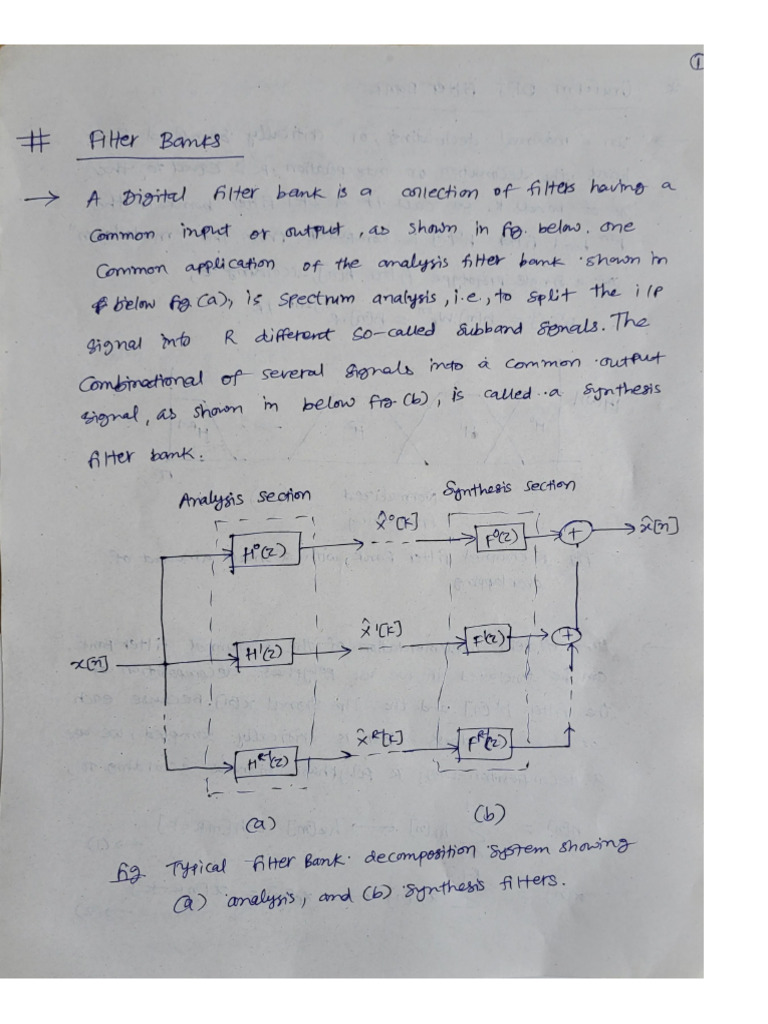 1
# Filter Banks
→ A Digital filter bank is a collection of filters having a
common input or output, as shown in fig. below. one
Common application of the analysis filter bank shown in
below fig (a), is spectrum analysis, i.e., to split the i/p
signal into R different so-called subband signals. The
Combinational of several signals into a common output
signal, as shown in below fig (b), is called a synthesis
filter bank.
Analysis section Synthesis section
H⁰(z) X̂⁰[k] F⁰(z) + x̂[n]
x[n] H¹(z) X̂¹[k] F¹(z) +
Hᴿ⁻¹(z) X̂ᴿ⁻¹[k] Fᴿ⁻¹(z)
(a) (b)
fig. Typical filter Bank decomposition system showing
(a) analysis, and (b) synthesis filters.